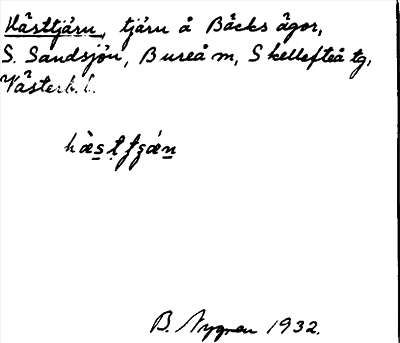 Hästtjärn, tjärn å Bäcks ägor,
S. Sandsjön, Bureå m, Skellefteå tg,
Västerb. l.
B. Nygren 1932.